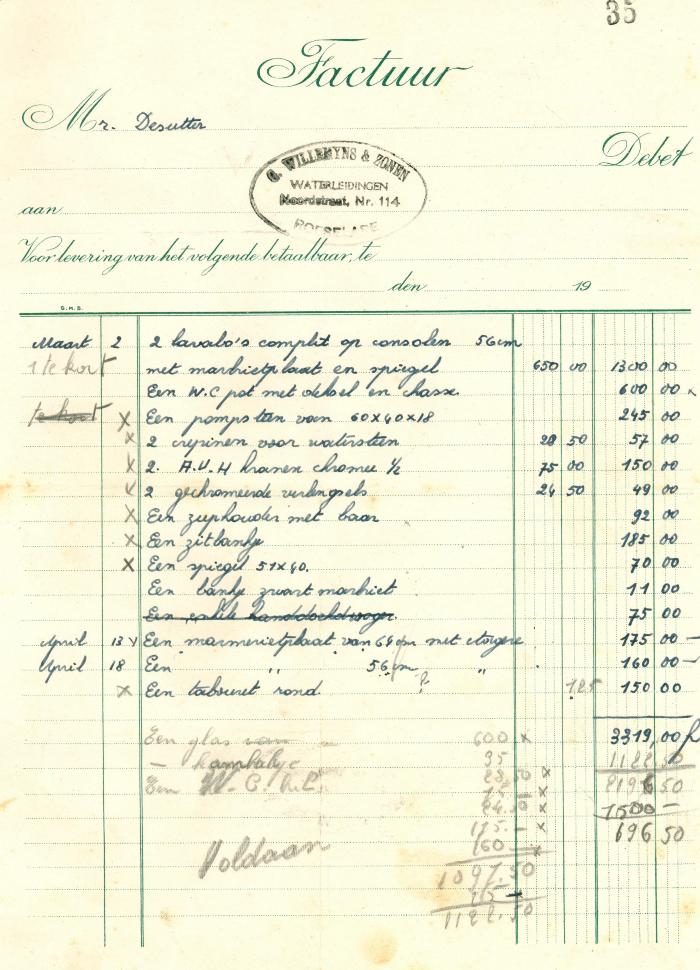 35
Factuur
Mr. Desutter
Debet
G. WILLEMYNS & ZONEN
WATERLEIDINGEN
Noordstraat, Nr. 114
ROESELARE
aan
Voor levering van het volgende betaalbaar, te
den 19
G.M.B.
Maart 2 2 lavabo's complit op consolen 56cm
1 te kort met marbrietplaat en spiegel 650 00 1300 00
Een W.C pot met deksel en chasse 600 00 x
te kort x Een pompsteen van 60x40x18 245 00
x 2 crepinen voor watersteen 28 50 57 00
x 2. A.U.H kranen chromee 1/2 75 00 150 00
x 2 gechromeerde verlengsels 24 50 49 00
x Een zeephouder met baar 92 00
x Een zitbankje 185 00
x Een spiegel 51x40. 70 00
Een bankje zwart marbriet 11 00
Een handdoekdroger. 75 00
April 13 x Een marmerietplaat van 64 cm met etagere 175 00 -
April 18 Een " 56cm " 160 00 -
x Een tabouret rond. ? 125 150 00
3319,00 f
Een glas van 600 x
1122 50
- 35
28,50 x
Een W.C. 2196 50
24.50 x
1500 -
175.- x
696 50
160 - x
Voldaan
1097.50
25 -
1122.50